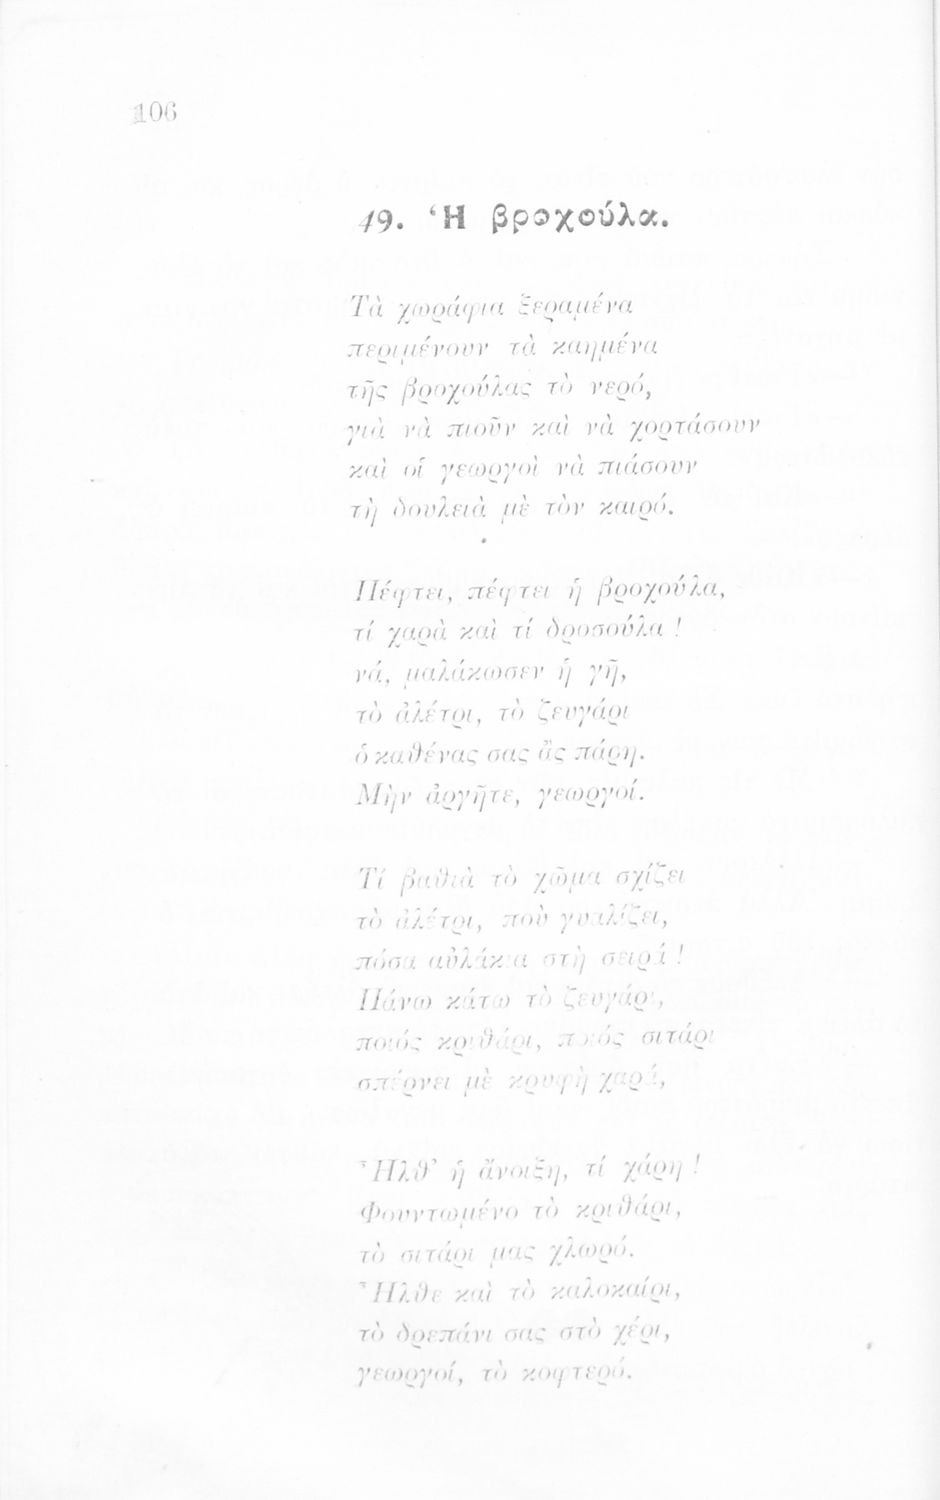 106
49. Ἡ βροχούλα.
Τὰ χωράφια ξεραμένα
περιμένουν τὰ καημένα
τῆς βροχούλας τὸ νερό,
γιὰ νὰ πιοῦν καὶ νὰ χορτάσουν
καὶ οἱ γεωργοὶ νὰ πιάσουν
τὴ δουλειὰ μὲ τὸν καιρό.
Πέφτει, πέφτει ἡ βροχούλα,
τί χαρὰ καὶ τί δροσούλα !
νά, μαλάκωσεν ἡ γῆ,
τὸ ἀλέτρι, τὸ ζευγάρι
ὁ καθένας σας ἂς πάρῃ.
Μὴν ἀργῆτε, γεωργοί.
Τί βαθιὰ τὸ χῶμα σχίζει
τὸ ἀλέτρι, ποὺ γυαλίζει,
πόσα αὐλάκια στὴ σειρά !
Πάνω κάτω τὸ ζευγάρι,
ποιός κριθάρι, ποιός σιτάρι
σπέρνει μὲ κρυφὴ χαρά,
Ἦλθ’ ἡ ἄνοιξη, τί χάρη !
Φουντωμένο τὸ κριθάρι,
τὸ σιτάρι μας χλωρό.
Ἦλθε καὶ τὸ καλοκαίρι,
τὸ δρεπάνι σας στὸ χέρι,
γεωργοί, τὸ κοφτερό.